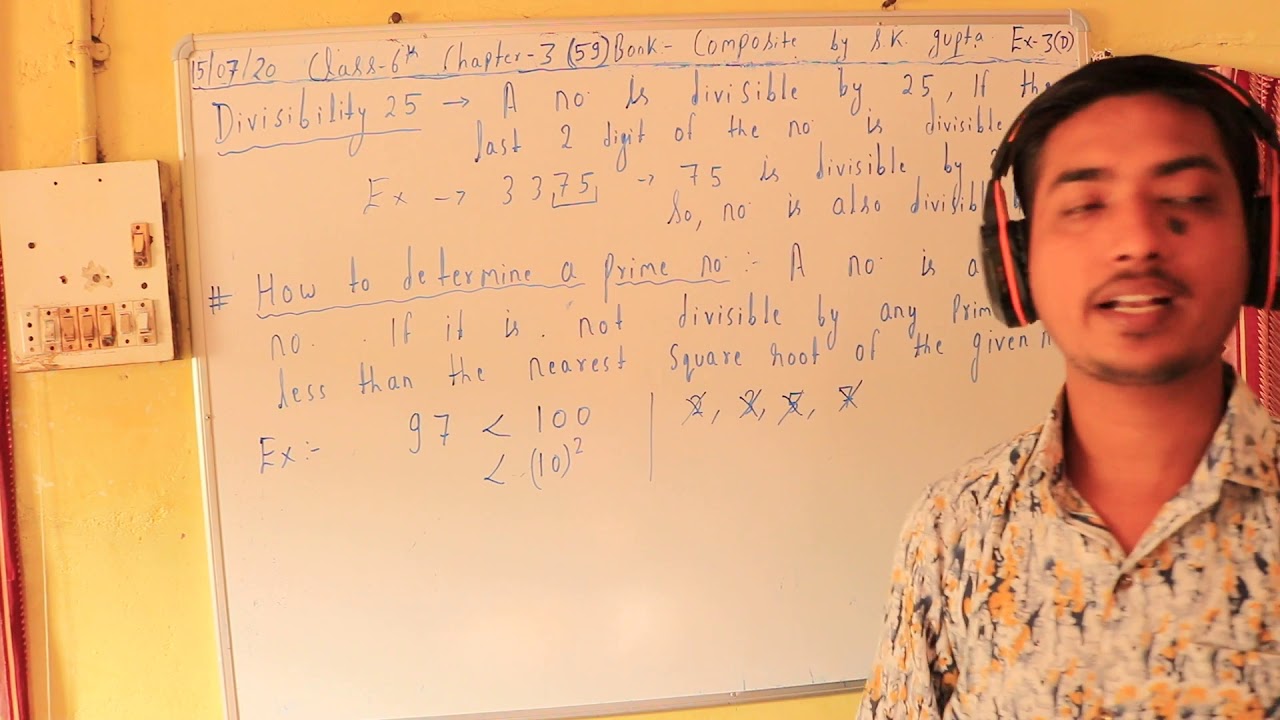 15/07/20 Class-6th Chapter-3 (59) Book:- Composite by S.K. gupta Ex-3(D)
Divisibility 25 → A no. is divisible by 25, If the
last 2 digit of the no. is divisible
Ex → 3375 → 75 is divisible by
So, no. is also divisibl
# How to determine a prime no. :- A no. is a
no. . If it is . not divisible by any Prim
less than the nearest Square root of the given
Ex:- 97 < 100 | 2, 3, 5, 7
< (10)²